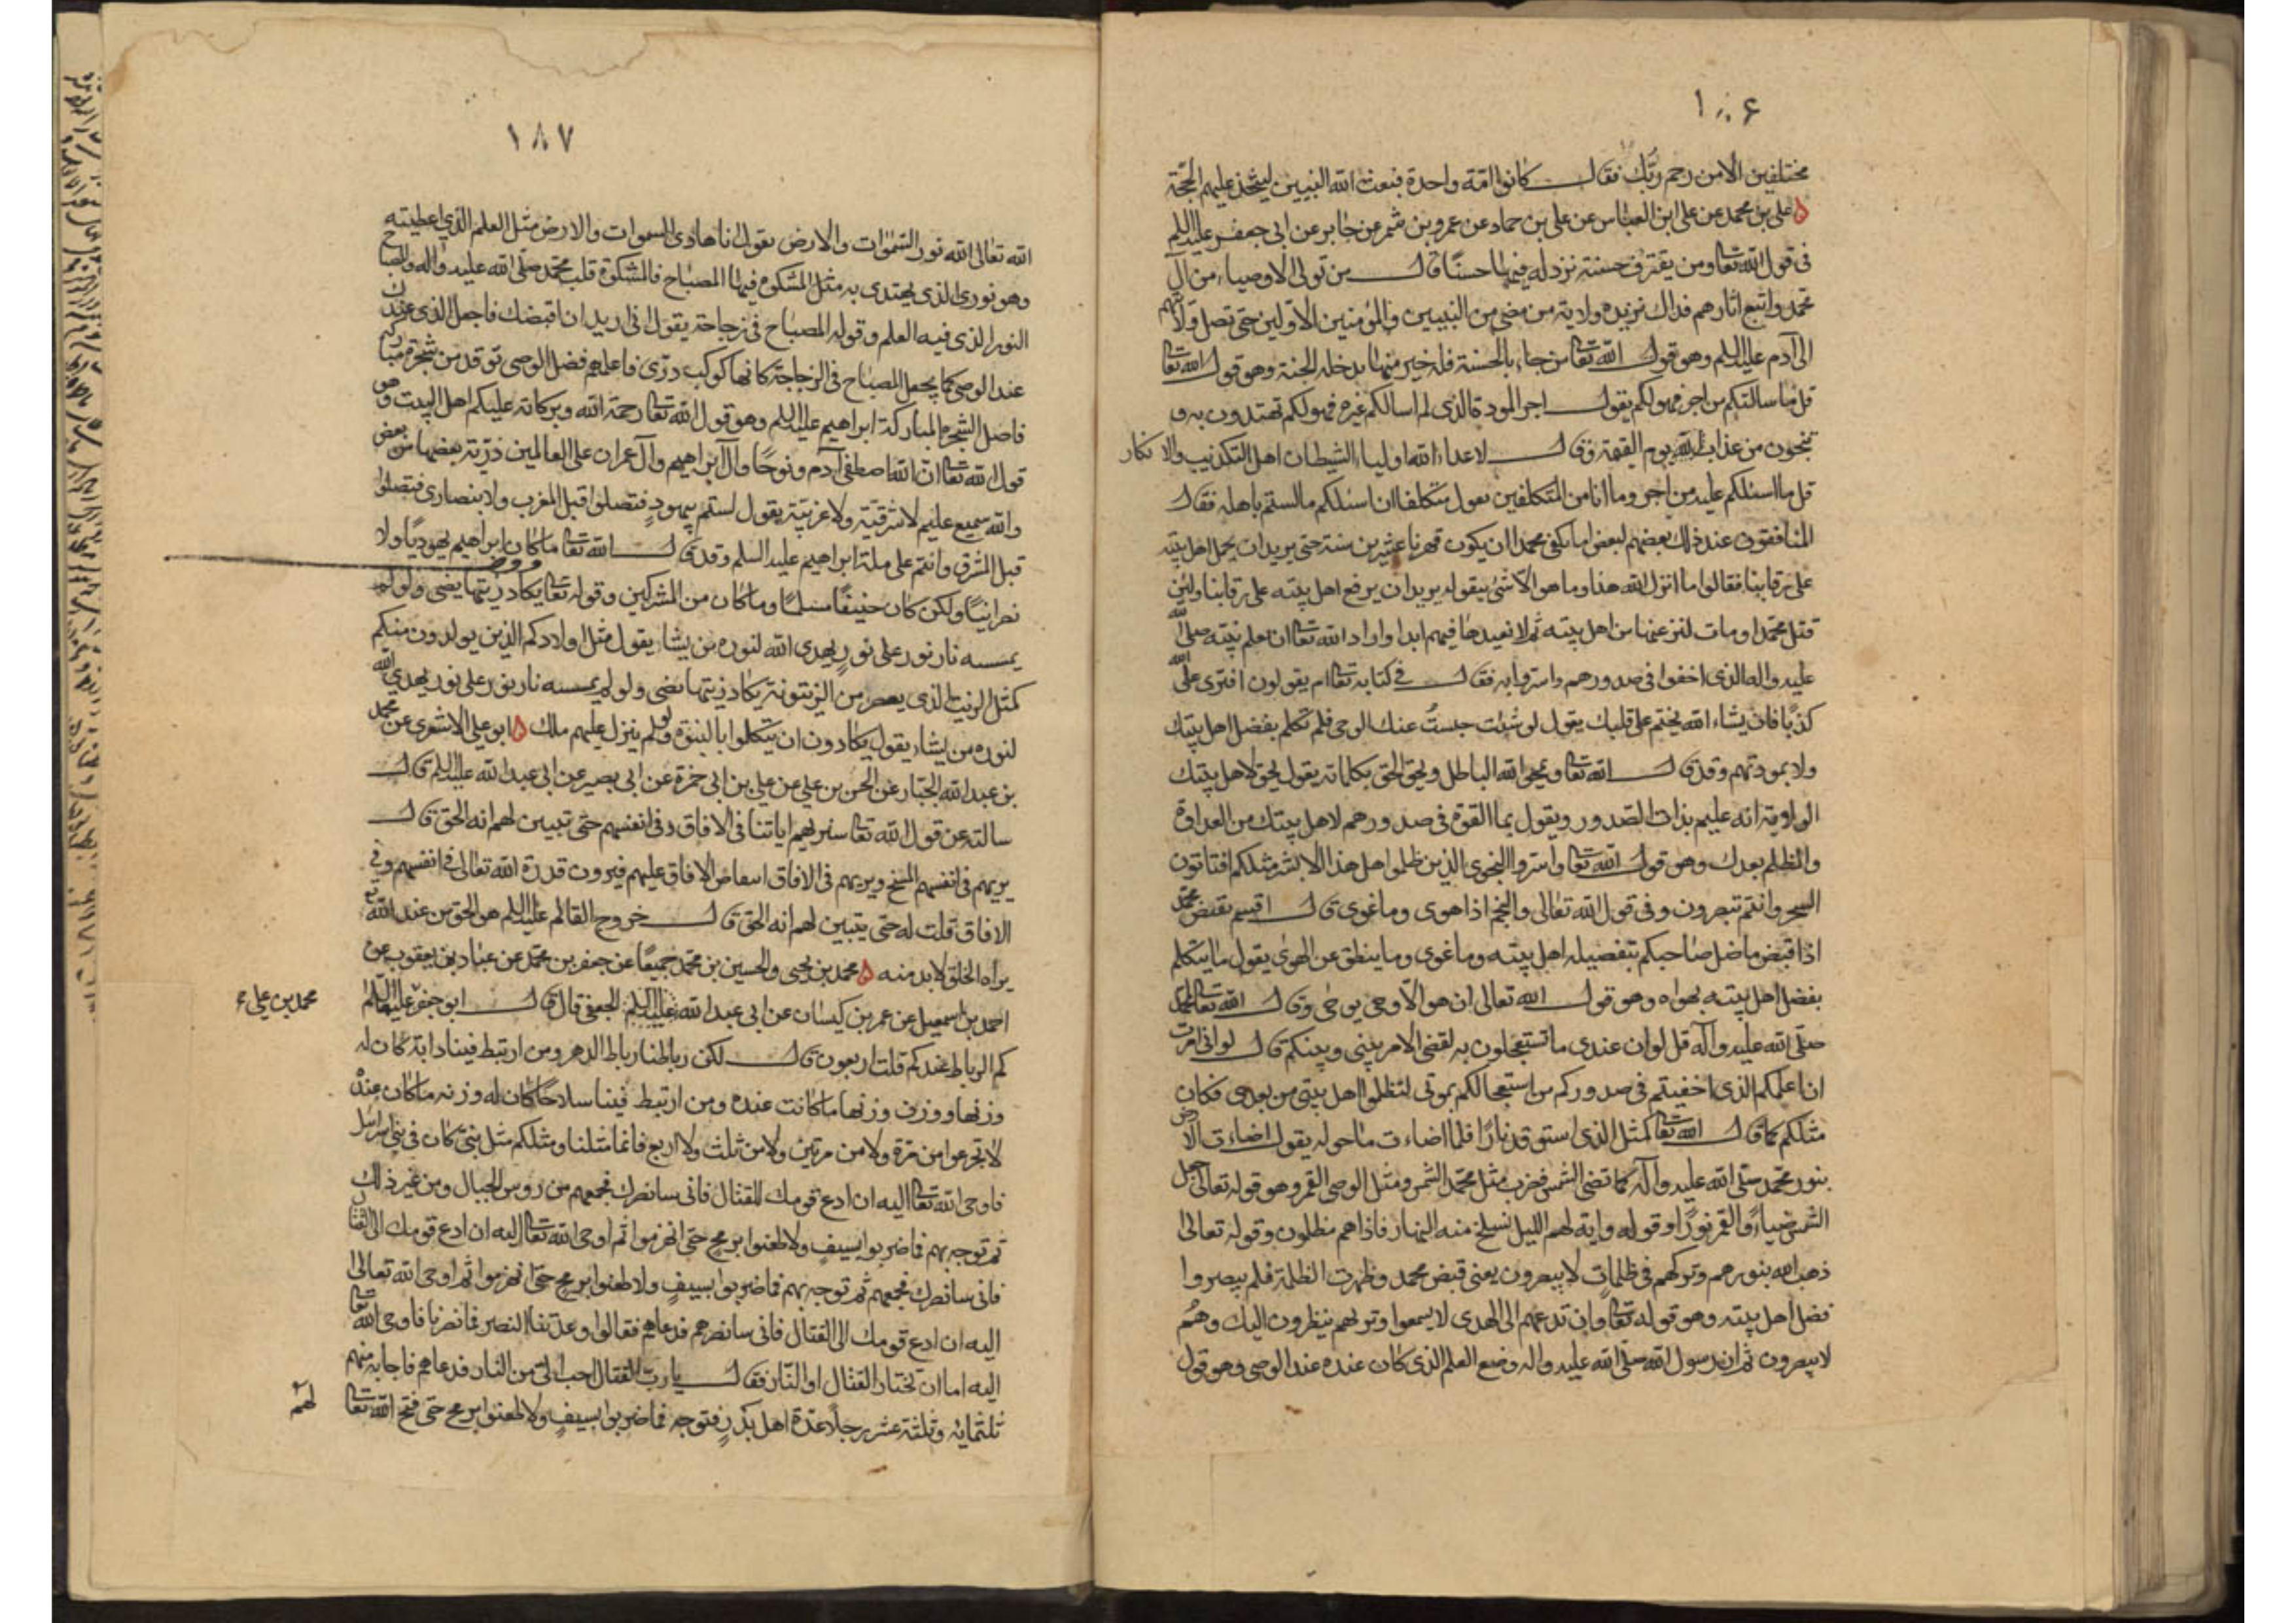 ١٨٦
مختلفين الا من رحم ربّك فقال كانوا امّة واحدة فبعث الله النبيين ليتخذ عليهم الحجّة
علي بن محمد عن علي ابن العباس عن علي بن حماد عن عمرو بن شمر عن جابر عن ابي جعفر عليه السلم
في قول الله تعا ومن يقترف حسنة نزد له فيها حسنًا قال من تولى الاوصياء من آل
محمد واتبع اثارهم فذاك نزيده ولاية من مضى من النبيين والمؤمنين الاولين حتى تصل ولايتهم
الى آدم عليه السلم وهو قول الله تعا من جاء بالحسنة فله خير منها يدخله الجنة وهو قول الله تعا
قل ما سالتكم من اجر فهو لكم يقول اجر المودة الذي لم اسالكم غيره فهو لكم تهتدون به و
تنجون من عذاب الله يوم القيمة وقال لاعداء الله اولياء الشيطان اهل التكذيب والانكار
قل ما اسئلكم عليه من اجر وما انا من المتكلفين يقول متكلفا ان اسئلكم ما لستم باهله فقال
المنافقون عند ذلك بعضهم لبعض اما يكفي محمدا ان يكون قهرنا عشرين سنة حتى يريد ان يحمل اهل بيته
على رقابنا فقالوا ما انزل الله هذا وما هو الّا شئ يتقوله يريد ان يرفع اهل بيته على رقابنا ولئن
قتل محمد او مات لننزعنها من اهل بيته ثم لا نعيدها فيهم ابدا واراد الله تعا ان يعلم نبيه صلى الله
عليه واله الذي اخفوا في صدورهم واسروا به فقال في كتابه تعا ام يقولون افترى على الله
كذبًا فان يشاء الله يختم على قلبك يقول لو شئت حبست عنك الوحي فلم تكلم بفضل اهل بيتك
ولا بمودتهم وقد قال الله تعا ويمحو الله الباطل ويحق الحق بكلماته يقول الحق لاهل بيتك
الولاية انه عليم بذات الصدور ويقول بما القوة في صدورهم لاهل بيتك من العداوة
والظلم بعدك وهو قول الله تعا واسروا النجوى الذين ظلموا هل هذا الا بشر مثلكم افتاتون
السحر وانتم تبصرون وفي قول الله تعالى والنجم اذا هوى وما غوى قال اقسم بقبض محمد
اذا قبض ما ضل صاحبكم بتفضيله اهل بيته وما غوى وما ينطق عن الهوى يقول ما يتكلم
بفضل اهل بيته بهواه وهو قول الله تعالى ان هو الّا وحي يوحى وقال الله تعا لمحمد
صلى الله عليه وآله قل لو ان عندي ما تستعجلون به لقضي الامر بيني وبينكم قال لو اني امرت
ان اعلمكم الذي اخفيتم في صدوركم من استعجالكم بموتي لتظلموا اهل بيتي من بعدي فكان
مثلكم كما قال الله تعا كمثل الذي استوقد نارًا فلما اضاءت ما حوله يقول اضاءت الارض
بنور محمد صلى الله عليه وآله كما تضئ الشمس فضرب مثل محمد الشمس ومثل الوصي القمر وهو قوله تعالى جعل
الشمس ضياءً والقمر نورًا وقوله واية لهم الليل نسلخ منه النهار فاذا هم مظلمون وقوله تعالى
ذهب الله بنورهم وتركهم في ظلمات لا يبصرون يعني قبض محمد وظهرت الظلمة فلم يبصروا
فضل اهل بيته وهو قوله تعا وان تدعهم الى الهدى لا يسمعوا وتريهم ينظرون اليك وهم
لا يبصرون ثم ان رسول الله صلى الله عليه واله وضع العلم الذي كان عنده عند الوصي وهو قول
١٨٧
الله تعالى الله نور السموات والارض يقول انا هادي السموات والارض مثل العلم الذي اعطيته
وهو نوري الذي يهتدى به مثل المشكوة فيها المصباح فالمشكوة قلب محمد صلى الله عليه واله والمصباح
النور الذي فيه العلم وقوله المصباح في زجاجة يقول اني اريد ان اقبضك فاجعل الذي عندك
عند الوصي كما يجعل المصباح في الزجاجة كانها كوكب درّي فاعلمهم فضل الوصي توقد من شجرة مباركة
فاصل الشجرة المباركة ابراهيم عليه السلم وهو قول الله تعا رحمة الله وبركاته عليكم اهل البيت وهو
قول الله تعا انّ الله اصطفى آدم ونوحًا وآل ابراهيم وآل عمران على العالمين ذرّية بعضها من بعض
والله سميع عليم لا شرقيّة ولا غربيّة يقول لستم بيهودٍ فتصلوا قبل المغرب ولا بنصارى فتصلوا
قبل المشرق وانتم على ملة ابراهيم عليه السلم وقد قال الله تعا ما كان ابراهيم يهوديًا ولا
نصرانيًا ولكن كان حنيفًا مسلمًا وما كان من المشركين وقوله تعا يكاد زيتها يضئ ولو لم
يمسسه نار نور على نورٍ يهدي الله لنوره من يشاء يقول مثل اولادكم الذين يولدون منكم
كمثل الزيت الذي يعصر من الزيتونة يكاد زيتها يضئ ولو لم يمسسه نار نور على نور يهدي الله
لنوره من يشاء يقول يكادون ان يتكلموا بالنبوة ولو لم ينزل عليهم ملك ابو علي الاشعري عن محمد
بن عبد الله الجبار عن الحسن بن علي عن علي بن ابي حمزة عن ابي بصير عن ابي عبد الله عليه السلم قال
سالته عن قول الله تعا سنريهم اياتنا في الافاق وفي انفسهم حتى تبيين لهم انه الحق قال
يريهم في انفسهم المسخ ويريهم في الافاق انتقاض الافاق عليهم فيرون قدرة الله تعالى في انفسهم وفي
الافاق قلت له حتى يتبين لهم انه الحق قال خروج القائم عليه السلم هو الحق من عند الله تع
يراه الخلق لا بد منه محمد بن يحيى والحسين بن محمد جميعًا عن جعفر بن محمد عن عباد بن يعقوب عن
احمد بن اسمعيل عن عمر بن كيسان عن ابي عبد الله عليه السلم الجعفي قال قال ابو جعفر عليهما السلم
محمد بن علي
كم الرباط عندكم قلت اربعون قال لكن رباطنا رباط الدهر ومن ارتبط فينا دابة كان له
وزنها ووزن وزنها ما كانت عنده ومن ارتبط فينا سلاحًا كان له وزنه ما كان عنده
لا تجزعوا من مرّة ولا من مرتين ولا من ثلث ولا اربع فانما مثلنا ومثلكم مثل نبي كان في بني اسرائيل
فاوحى الله تعا اليه ان ادع قومك للقتال فاني سانصرك فجمعهم من روس الجبال ومن غير ذلك
ثم توجه بهم فما ضربوا بسيفٍ ولا طعنوا برمح حتى انهزموا ثم اوحى الله تعا اليه ان ادع قومك الى القتال
فاني سانصرك فجمعهم ثم توجه بهم فما ضربوا بسيفٍ ولا طعنوا برمح حتى انهزموا ثم اوحى الله تعالى
اليه ان ادع قومك الى القتال فاني سانصرهم فدعاهم فقالوا وعدتنا النصر فما نصرنا فاوحى الله تعا
اليه اما ان تختار القتال او النّار فقال يا ربّ القتال احب اليّ من النار فدعاهم فاجابه منهم
ثلثمائه وثلثة عشر رجلًا عدّة اهل بدرٍ فتوجه فما ضربوا بسيفٍ ولا طعنوا برمح حتى فتح الله تعا
لهم